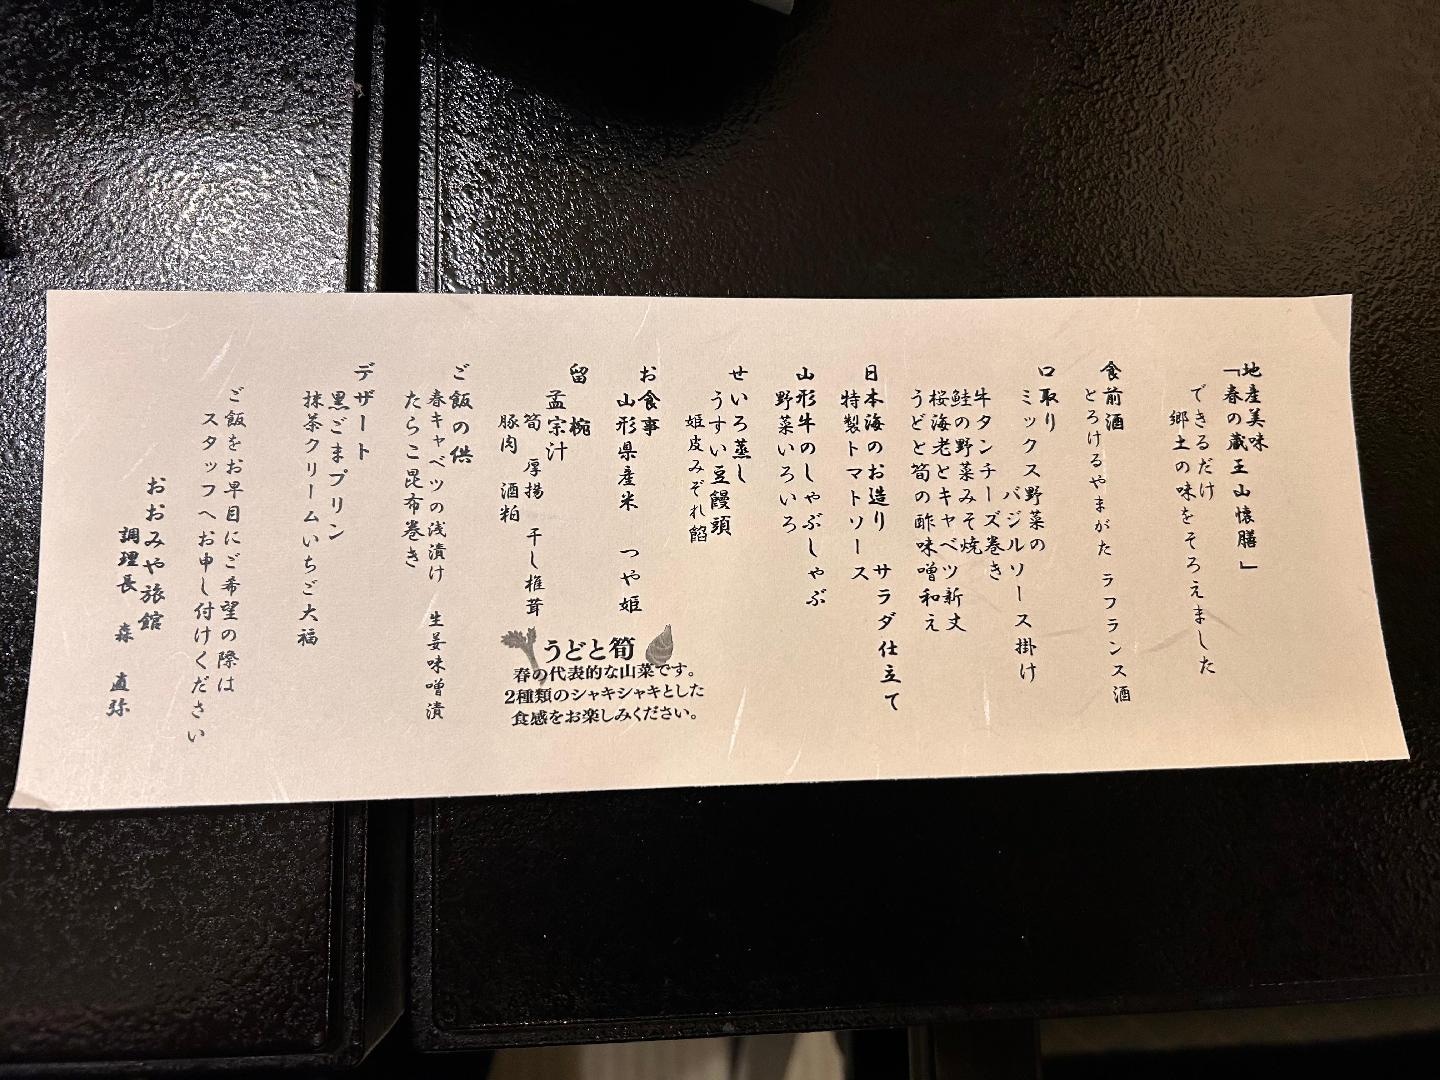 地産美味
「春の蔵王山懐膳」
できるだけ
郷土の味をそろえました
食前酒
とろけるやまがた ラフランス酒
口取り
ミックス野菜の
バジルソース掛け
牛タンチーズ巻き
鮭の野菜みそ焼
桜海老とキャベツ新丈
うどと筍の酢味噌和え
日本海のお造り サラダ仕立て
特製トマトソース
山形牛のしゃぶしゃぶ
野菜いろいろ
せいろ蒸し
うすい豆饅頭
姫皮みぞれ餡
お食事
山形県産米 つや姫
留椀
孟宗汁
筍 厚揚 干し椎茸
豚肉 酒粕
うどと筍
春の代表的な山菜です。
2種類のシャキシャキとした
食感をお楽しみください。
ご飯の供
春キャベツの浅漬け 生姜味噌漬
たらこ昆布巻き
デザート
黒ごまプリン
抹茶クリームいちご大福
ご飯をお早目にご希望の際は
スタッフへお申し付けください
おおみや旅館
調理長 森 直弥